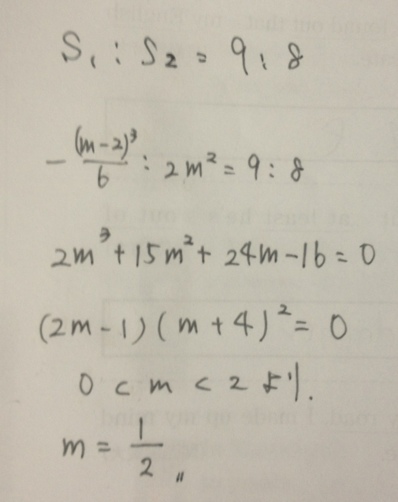 S₁ : S₂ = 9 : 8
-(m-2)³/6 : 2m² = 9 : 8
2m³ + 15m² + 24m - 16 = 0
(2m-1)(m+4)² = 0
0 < m < 2 より.
m = 1/2 〃